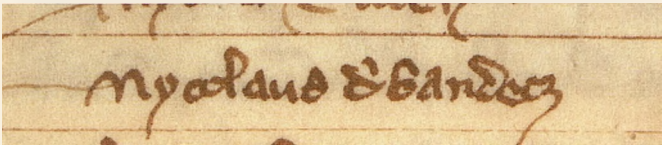 Nycolaus de Sandecz